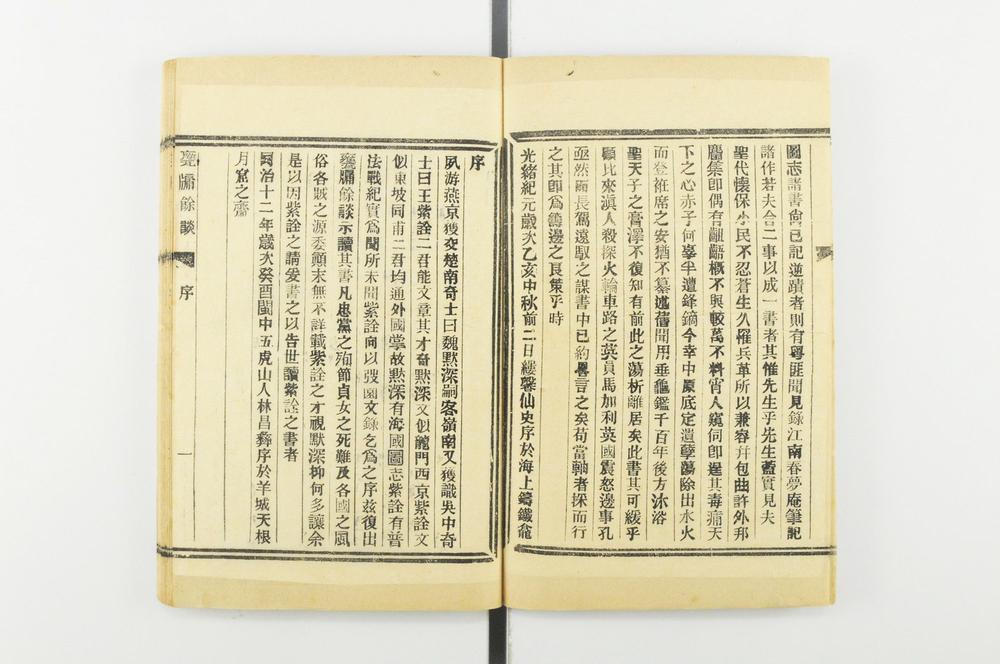 圖志諸書尙已記逆蹟者則有粵匪聞見錄江南春夢庵筆記
諸作若夫合二事以成一書者其惟先生乎先生藍實見夫
聖代懷保小民不忍蒼生久罹兵革所以兼容幷包曲許外邦
麕集卽偶有齟齬槪不與較萬不料宵人窺伺卽逞其毒痡天
下之心赤子何辜半遭鋒鏑今幸中原底定遺孽蕩除出水火
而登袵席之安猶不纂述舊聞用垂龜鑑千百年後方沐浴
聖天子之膏澤不復知有前此之蕩析離居矣此書其可緩乎
顧比來滇人殺探火輪車路之英員馬加利英國震怒邊事孔
亟然而長駕遠馭之謀書中已約畧言之矣苟當軸者採而行
之其卽爲籌邊之良策乎時
光緒紀元歲次乙亥中秋前二日縷馨仙史序於海上鑄鐵龕
序
夙游燕京獲交楚南奇士曰魏默深嗣客嶺南又獲識吳中奇
士曰王紫詮二君能文章其才奇默深文似龍門西京紫詮文
似東坡同甫二君均通外國掌故默深有海國圖志紫詮有普
法戰紀實爲聞所未聞紫詮向以弢園文錄乞爲之序玆復出
甕牖餘談示讀其書凡忠黨之殉節貞女之死難及各國之風
俗各賊之源委顚末無不詳載紫詮之才視默深抑何多讓余
是以因紫詮之請爰書之以告世讀紫詮之書者
同治十二年歲次癸酉閩中五虎山人林昌彝序於羊城天根
月窟之齋
甕牖餘談
序
一